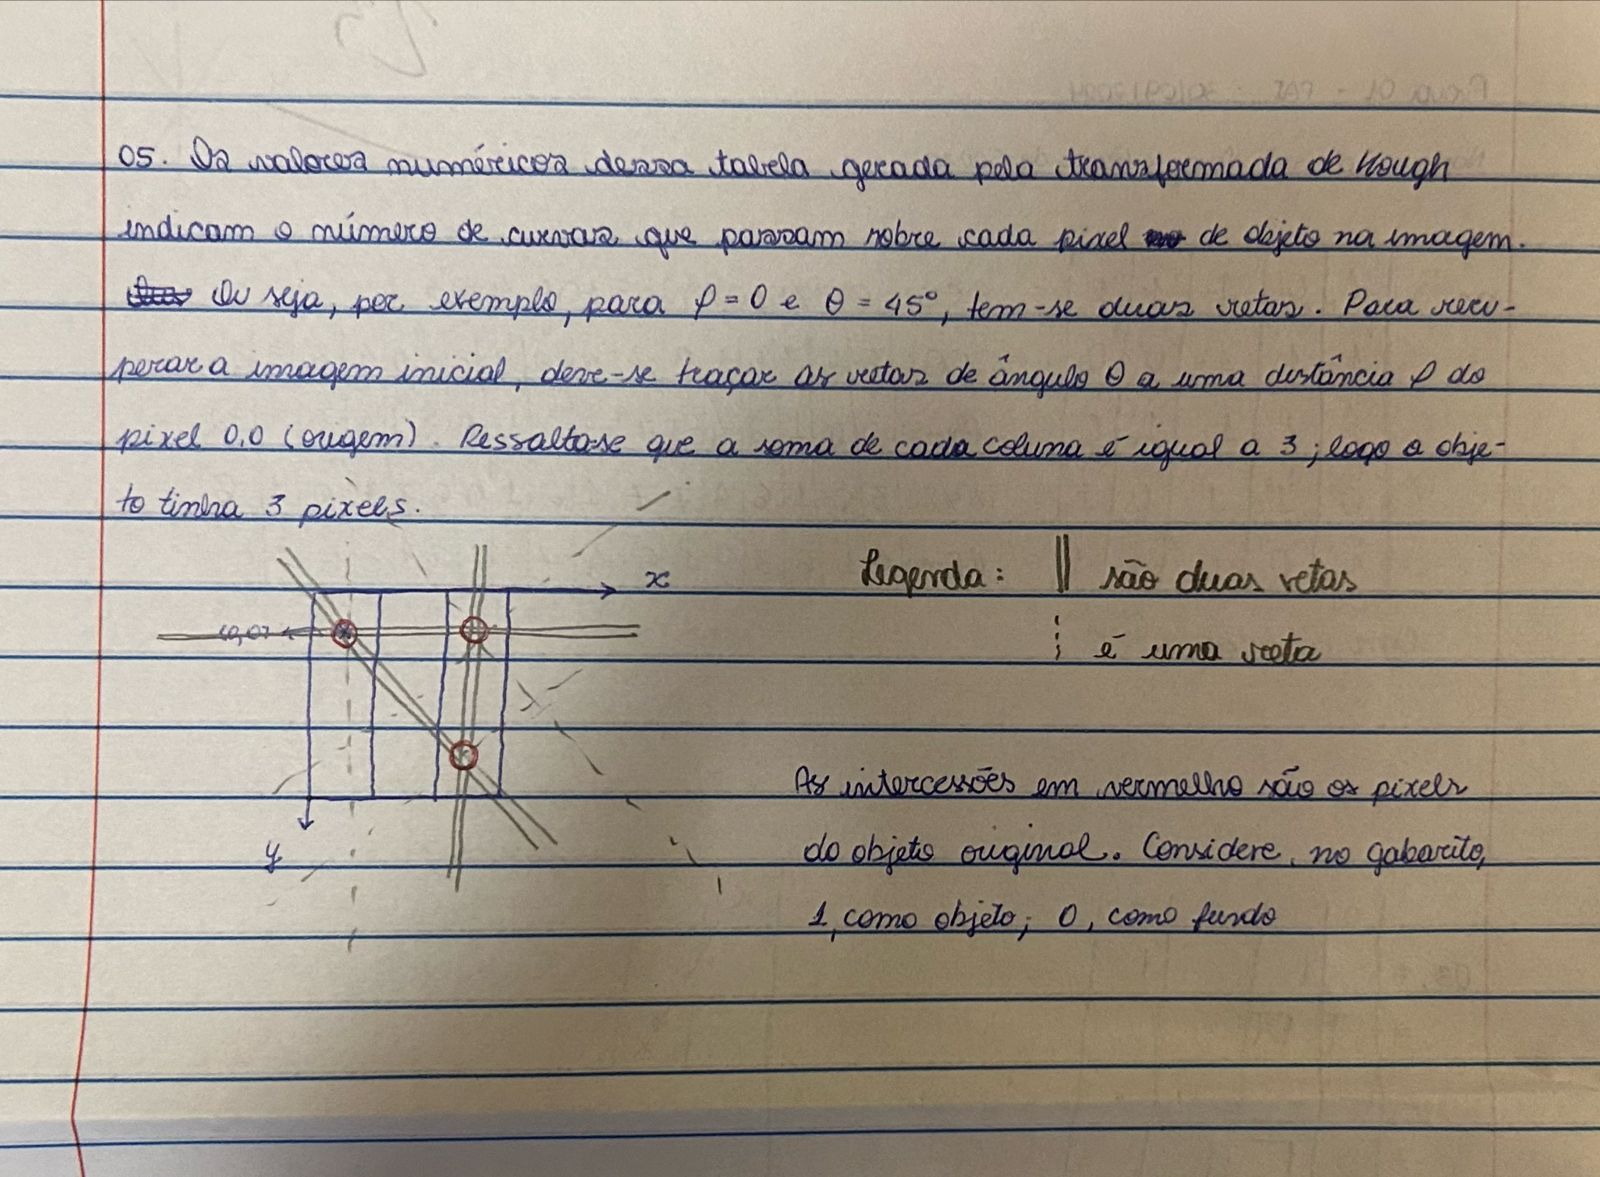 05. Os valores numéricos dessa tabela gerada pela transformada de Hough
indicam o número de curvas que passam sobre cada pixel de objeto na imagem.
Ou seja, por exemplo, para ρ = 0 e θ = 45°, tem-se duas retas. Para recu-
perar a imagem inicial, deve-se traçar as retas de ângulo θ a uma distância ρ do
pixel 0,0 (origem). Ressalta-se que a soma de cada coluna é igual a 3; logo o obje-
to tinha 3 pixels.
x
Legenda: || são duas retas
⋮ é uma reta
(0,0)
y
As intercessões em vermelho são os pixels
do objeto original. Considere, no gabarito,
1, como objeto; 0, como fundo